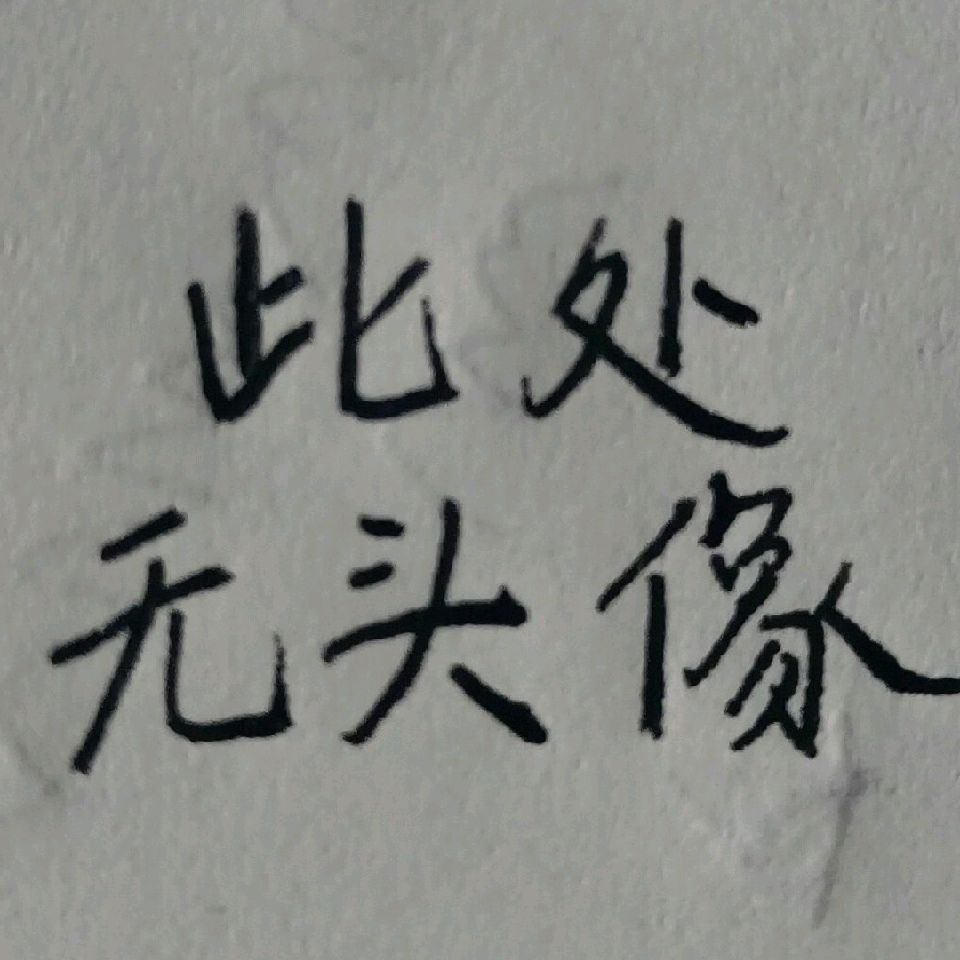 此处
无头像